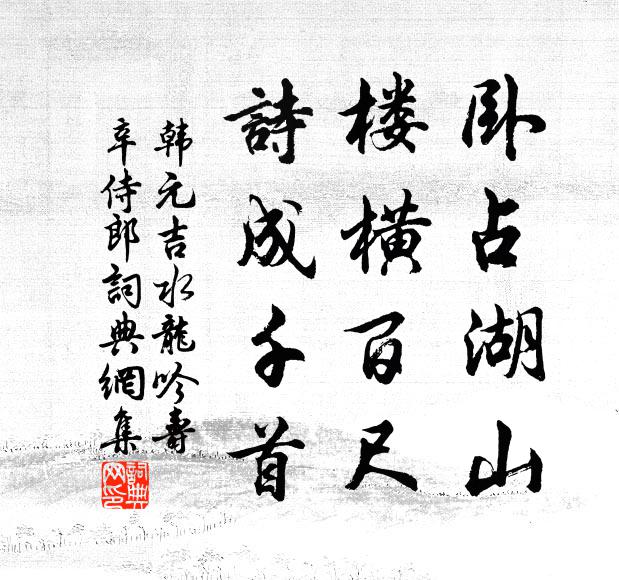 卧占湖山
楼横百尺
詩成千首
韩元吉水龍吟壽
辛侍郎詞典網集
詞典网印